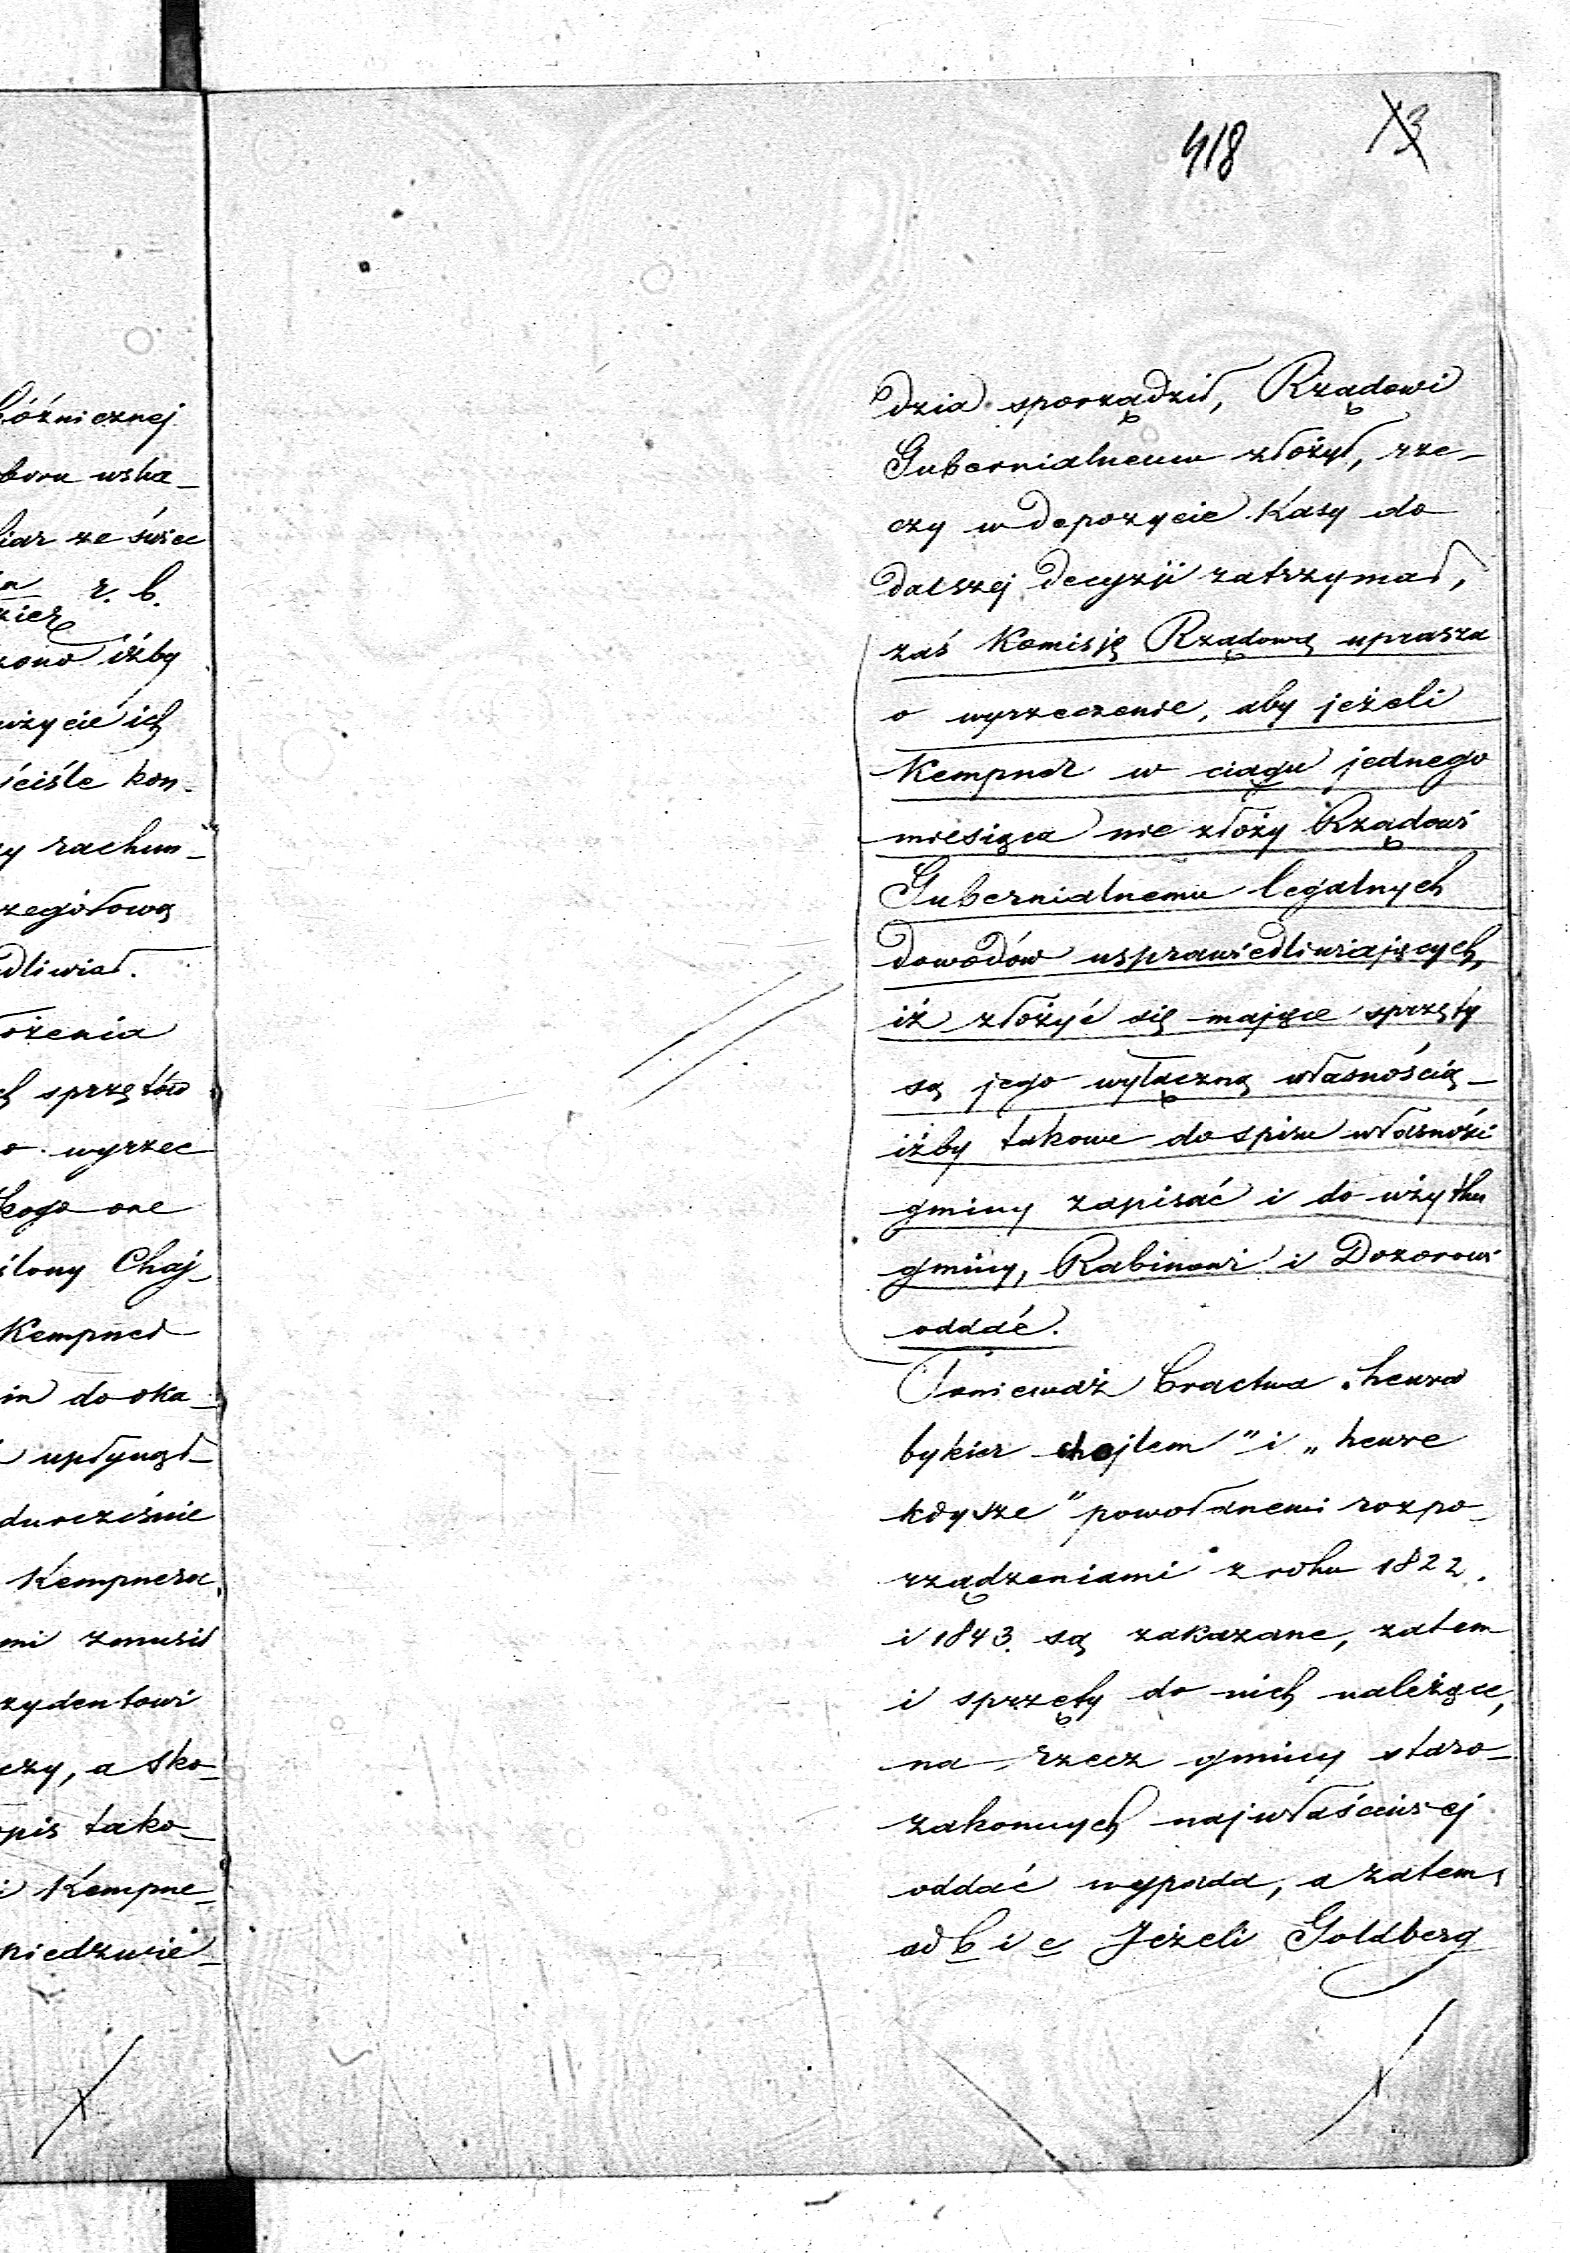 418
13
bóżnicznej
boru uska_
liar ze świec
r. b.
zono iżby
użycie ich
ściśle kon_
y rachun_
zegółową
dliwiał.
ożenia
h sprzętów
o wyrzec
kogo one
ślony Chaj_
Kempner
in do oka_
upłynął
durcześnie
Kempnera
mi zmusił
zydentowi
czy, a sko_
opis tako_
i Kempne_
niedzwie_
dzia sporządził, Rządowi
Gubernialnemu złożył, rze_
czy w depozycie Kasy do
dalszej decyzji zatrzymał,
zaś Komisję Rządową uprasza
o wyrzeczenie, aby jeżeli
Kempner w ciągu jednego
miesiąca nie złoży Rządowi
Gubernialnemu legalnych
dowodów usprawiedliwiających,
iż złożyć się mające sprzęty
są jego wyłączną własnością_
iżby takowe do spisu własności
gminy zapisać i do użytku
gminy, Rabinowi i Dozorowi
oddać.
Ponieważ bractwa „hewra
bykier chojlem" i „hewre
kdysze" powołanemi rozpo_
rządzeniami z roku 1822.
i 1843. są zakazane, zatem
i sprzęty do nich należące,
na rzecz gminy staro_
zakonnych najwłaściwiej
oddać wypada, a zatem,
ad b i c Jeżeli Goldberg